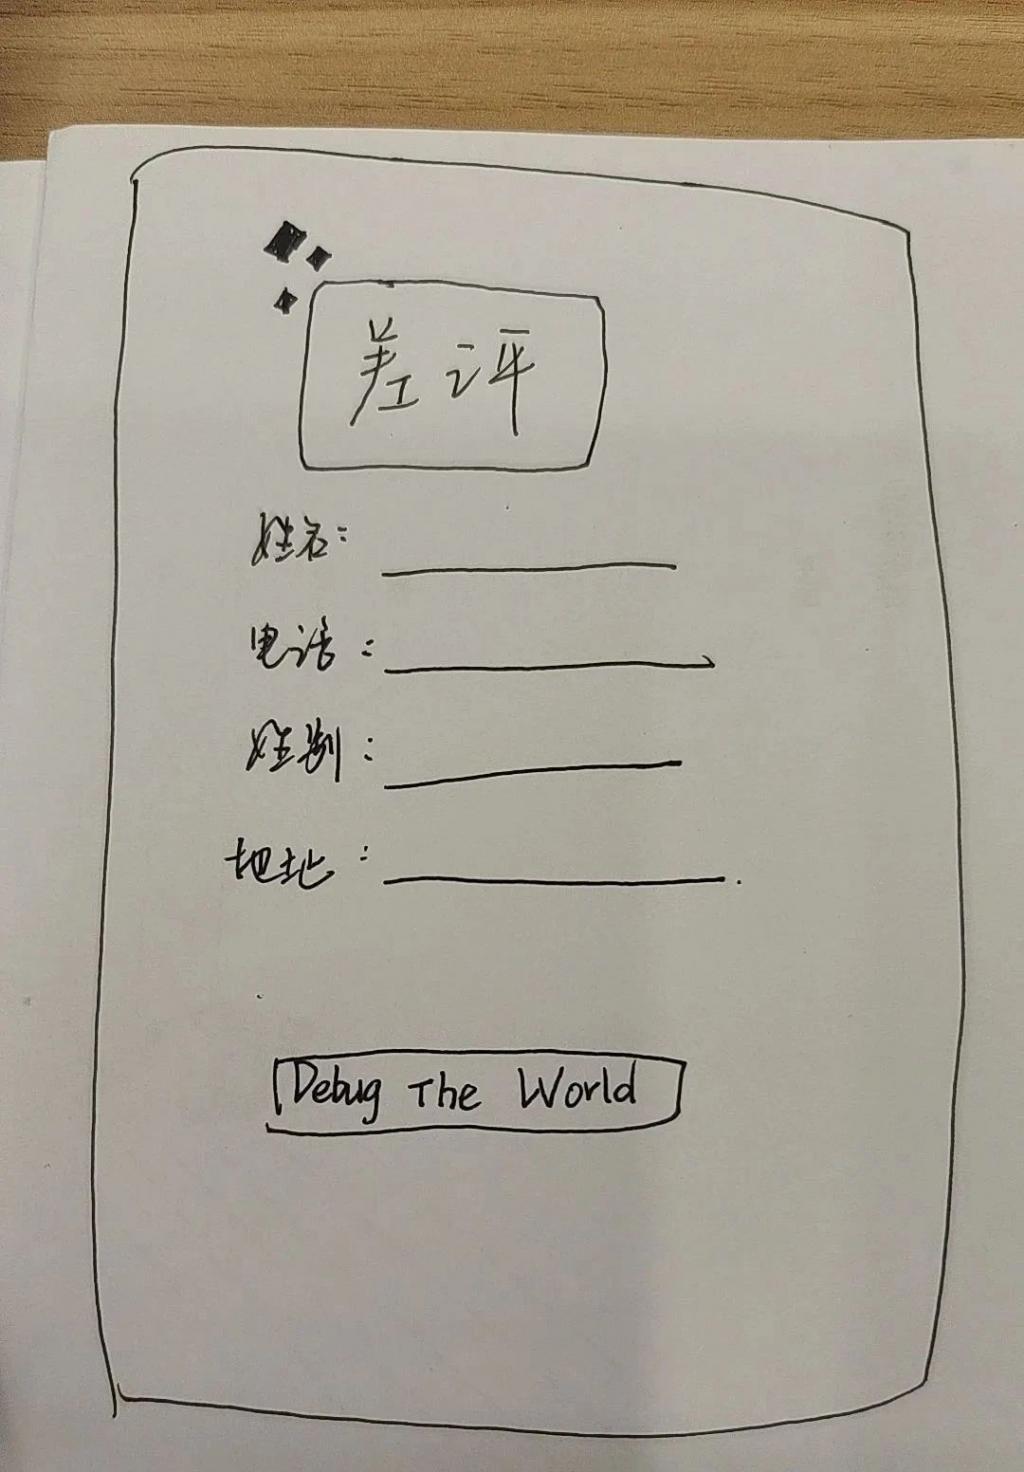 差评
姓名:
电话:
姓别:
地址:
Debug The World